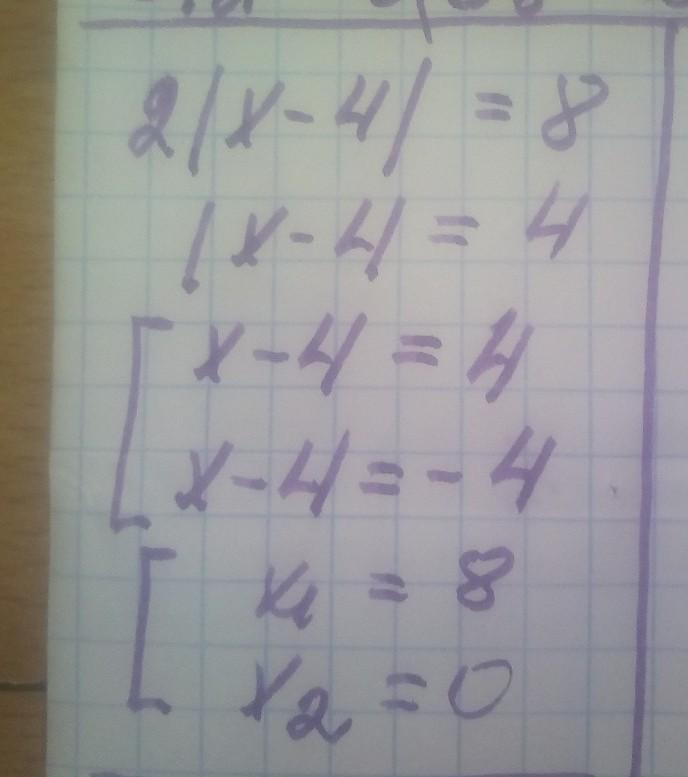 2|x-4| = 8
|x-4| = 4
x-4 = 4
x-4 = -4
x₁ = 8
x₂ = 0